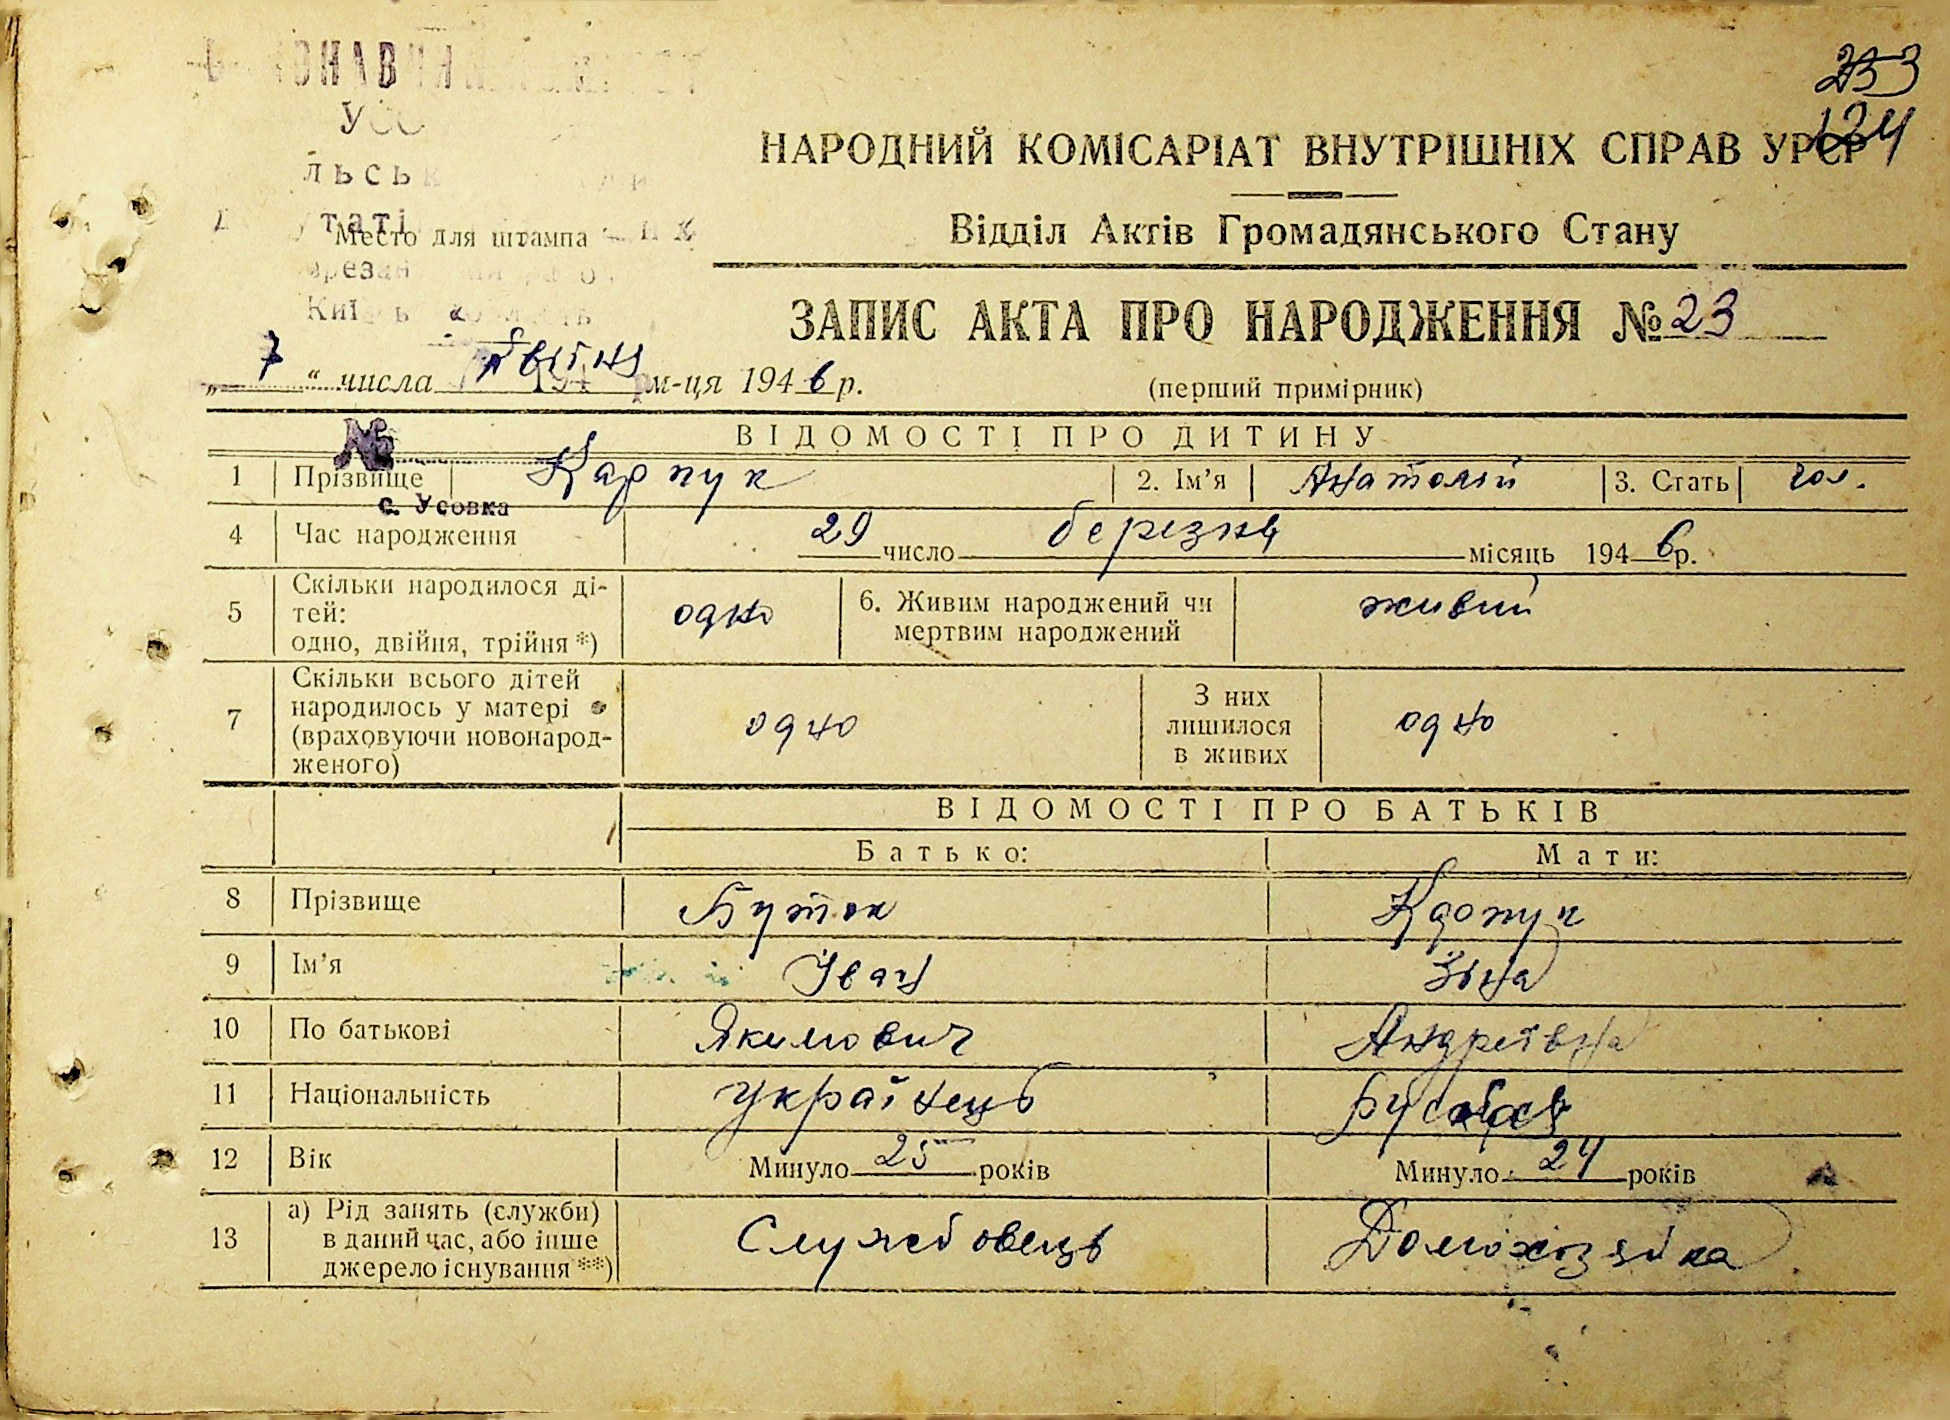 253
124
НАРОДНИЙ КОМІСАРІАТ ВНУТРІШНІХ СПРАВ УРСР
Место для штампа
Відділ Актів Громадянського Стану
ЗАПИС АКТА ПРО НАРОДЖЕННЯ № 23
„ 7 “ числа квітня м-ця 1946 р.
(перший примірник)
№
ВІДОМОСТІ ПРО ДИТИНУ
1 Прізвище Карпук 2. Ім’я Анатолій 3. Стать чол.
с. Усовка
4 Час народження 29 число березня місяць 1946 р.
5 Скільки народилося дітей: одно, двійня, трійня *) одно 6. Живим народжений чи мертвим народжений живий
7 Скільки всього дітей народилось у матері (враховуючи новонародженого) одно З них лишилося в живих одно
ВІДОМОСТІ ПРО БАТЬКІВ
Батько: Мати:
8 Прізвище Карпук
9 Ім’я Іван Зіна
10 По батькові Якимович Андріївна
11 Національність Українець
12 Вік Минуло 25 років Минуло 24 років
13 а) Рід занять (служби) в даний час, або інше джерело існування **) Службовець Домохозяйка